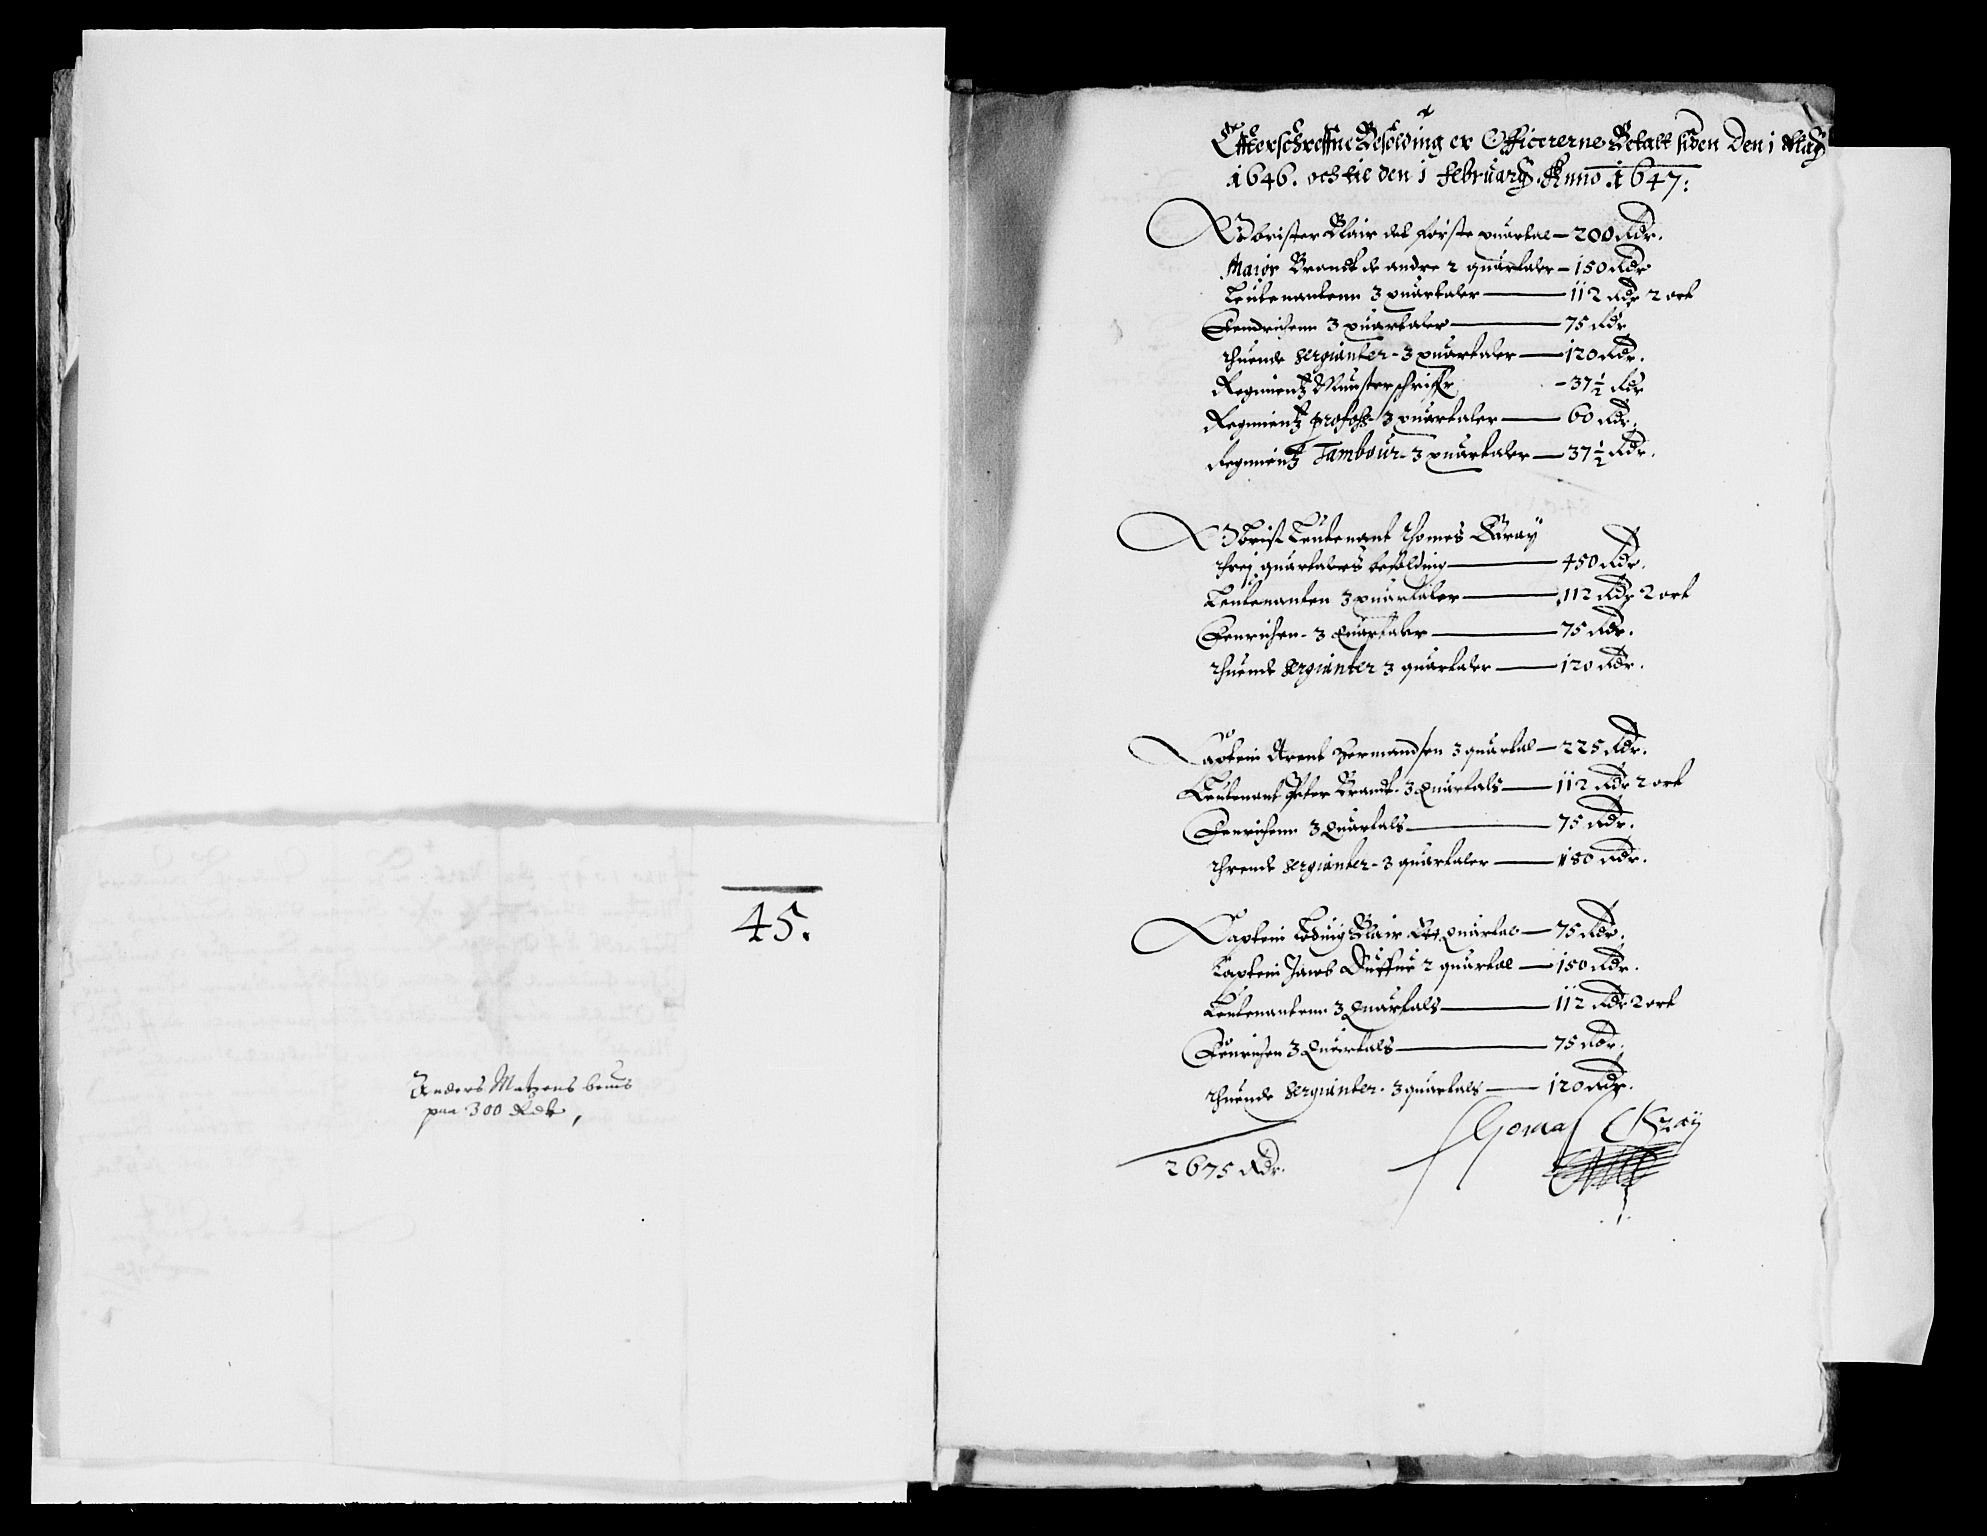 45.
Anders Matzens beuis
paa 300 Rdr,
Effterschreffne Besolding er Officererne Betalt siden Den 1 Maÿ
1646. och til den 1 februarÿ Anno 1647:
Obrister Blair det første quartal — 200 Rdr.
Maior Brandt de andre 2 quartaler — 150 Rdr
Leutenantenn 3 quartaler — 112 Rdr 2 ort
Fendrichenn 3 quartaler — 75 Rdr
thuende sergianter 3 quartaler — 120 Rdr.
Regimentz Munsterschriffr — 37 1/2 Rdr
Regimentz profos 3 quartaler — 60 Rdr.
Regimentz Tambour 3 quartaler — 37 1/2 Rdr.
Obrist Leutenant Thomes Graÿ
threj quartalers besolding — 450 Rdr.
Leutenanten 3 quartaler — 112 Rdr 2 ort
Fenrichen 3 Quartaler — 75 Rdr.
thuende sergianter 3 quartaler — 120 Rdr.
Captein Arent Hermandsen 3 quartal — 225 Rdr.
Leutenant Peter Brandt 3 Quartals — 112 Rdr 2 ort
Fenrichenn 3 Quartals — 75 Rdr.
thrende sergianter 3 quartaler — 180 Rdr.
Captein Loduig Blair Ett quartal — 75 Rdr.
Captein Jacob Duffue 2 quartal — 150 Rdr.
Leutenantenn 3 Quartals — 112 Rdr 2 ort
Fenrichen 3 Quartals — 75 Rdr.
thuende sergianter 3 quartals — 120 Rdr.
Thomas Graÿ
2675 Rdr.